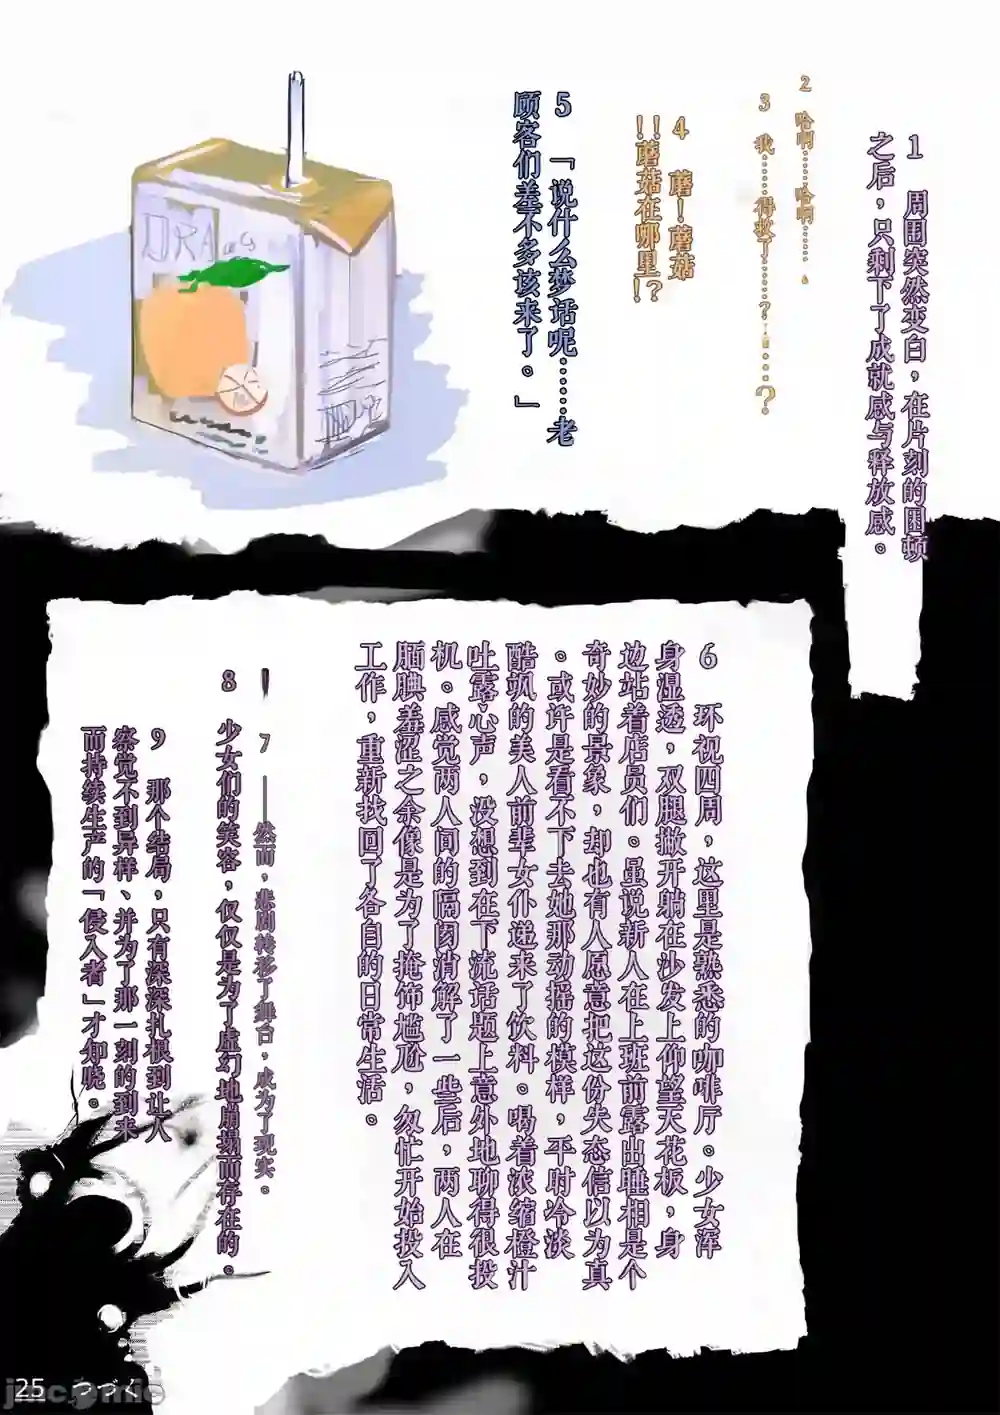 1 周围突然变白，在片刻的困顿
之后，只剩下了成就感与释放感。
2 哈啊……哈啊……。
3 我……得救了……？……？
4 蘑！蘑菇
！！蘑菇在哪里！？
5 「说什么梦话呢……老
顾客们差不多该来了。」
DRA
6 环视四周，这里是熟悉的咖啡厅。少女浑
身湿透，双腿撇开躺在沙发上仰望天花板，身
边站着店员们。虽说新人在上班前露出睡相是个
奇妙的景象，却也有人愿意把这份失态信以为真
。或许是看不下去她那动摇的模样，平时冷淡
酷飒的美人前辈女仆递来了饮料。喝着浓缩橙汁
吐露心声，没想到在下流话题上意外地聊得很投
机。感觉两人间的隔阂消解了一些后，两人在
腼腆羞涩之余像是为了掩饰尴尬，匆忙开始投入
工作，重新找回了各自的日常生活。
7 ——然而，悲剧转移了舞台，成为了现实。
8 少女们的笑容，仅仅是为了虚幻地崩塌而存在的。
9 那个结局，只有深深扎根到让人
察觉不到异样、并为了那一刻的到来
而持续生产的「侵入者」才知晓。
25 つづく
jmcomic